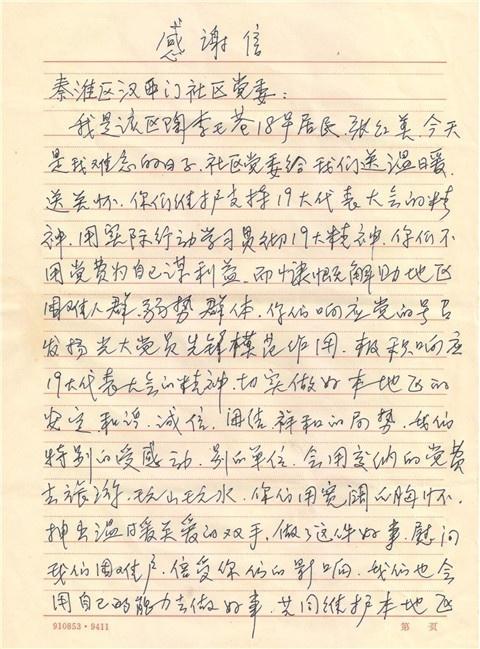 感谢信
秦淮区汉西门社区党委:
我是该区陶李王巷18号居民,张红美,今天
是我难忘的日子,社区党委给我们送温暖,
送关怀,你们维护支持19大代表大会的精
神,用实际行动学习贯彻19大精神,你们不
用党费为自己谋利益,而慷慨解助地区
困难人群,弱势群体,你们响应党的号召
发扬光大党员先锋模范作用,积极响应
19大代表大会的精神,切实做好本地区的
安定和谐,诚信,团结祥和的局势,我们
特别的受感动,别的单位,会用交纳的党费
去旅游,玩山玩水,你们用宽阔的胸怀,
抻出温暖关爱的双手,做了这件好事,慰问
我们困难户,倍受你们的影响,我们也会
用自己的能力去做好事,共同维护本地区
910853·9411 第 页